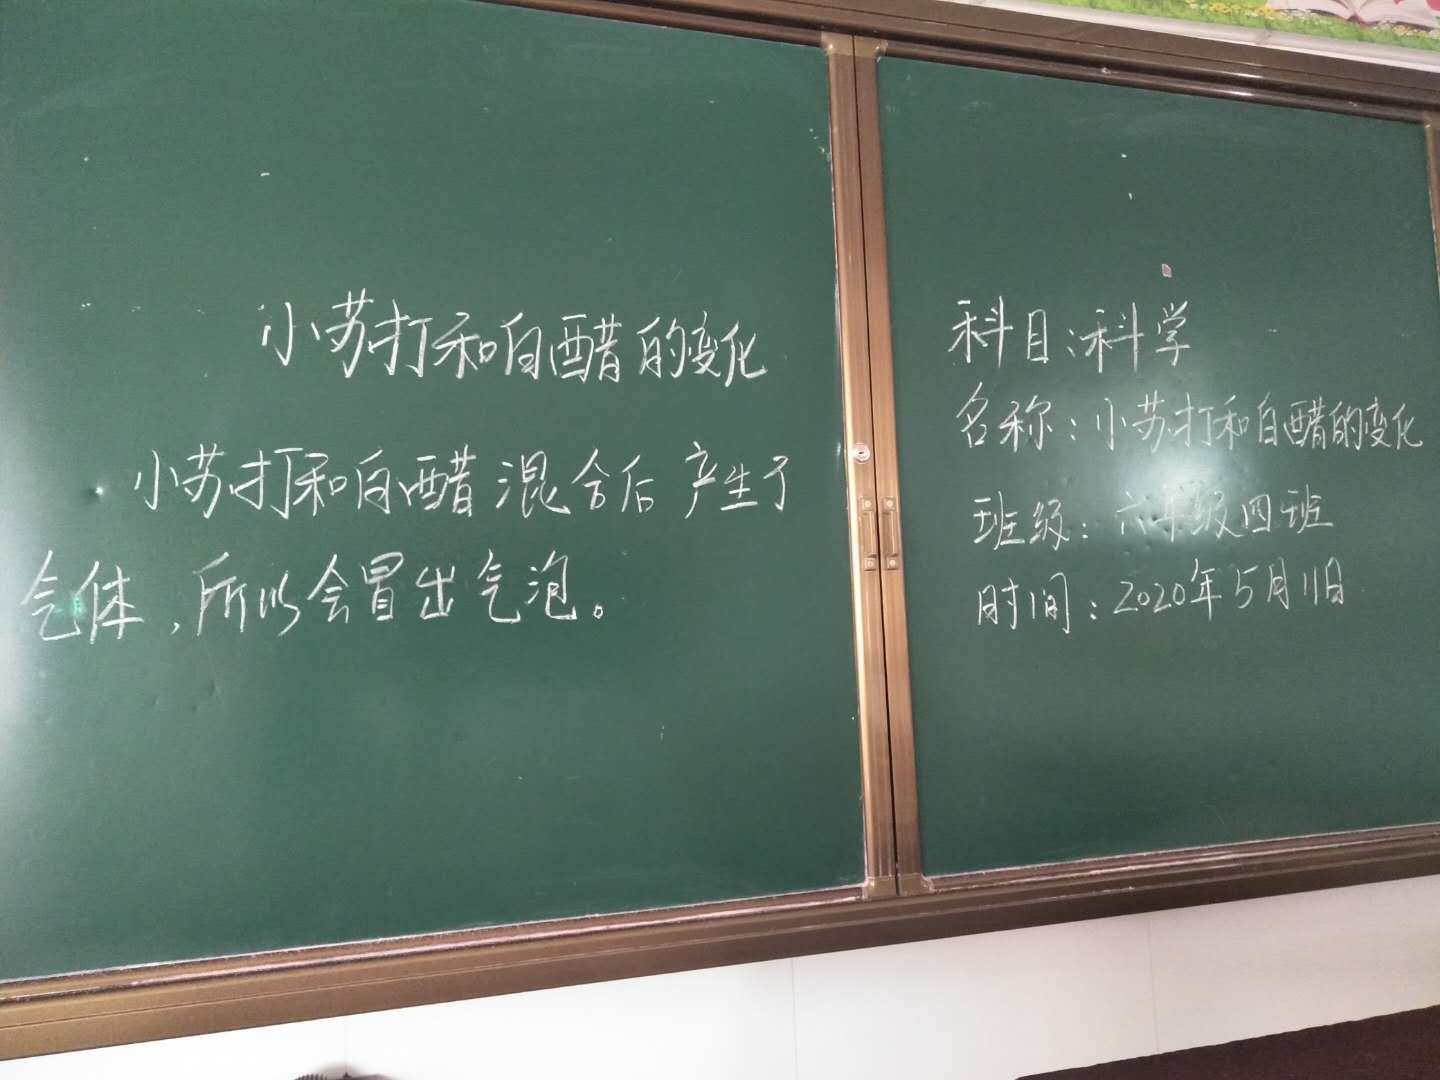 小苏打和白醋的变化
小苏打和白醋混合后产生了
气体,所以会冒出气泡。
科目:科学
名称:小苏打和白醋的变化
班级:六年级四班
时间:2020年5月11日